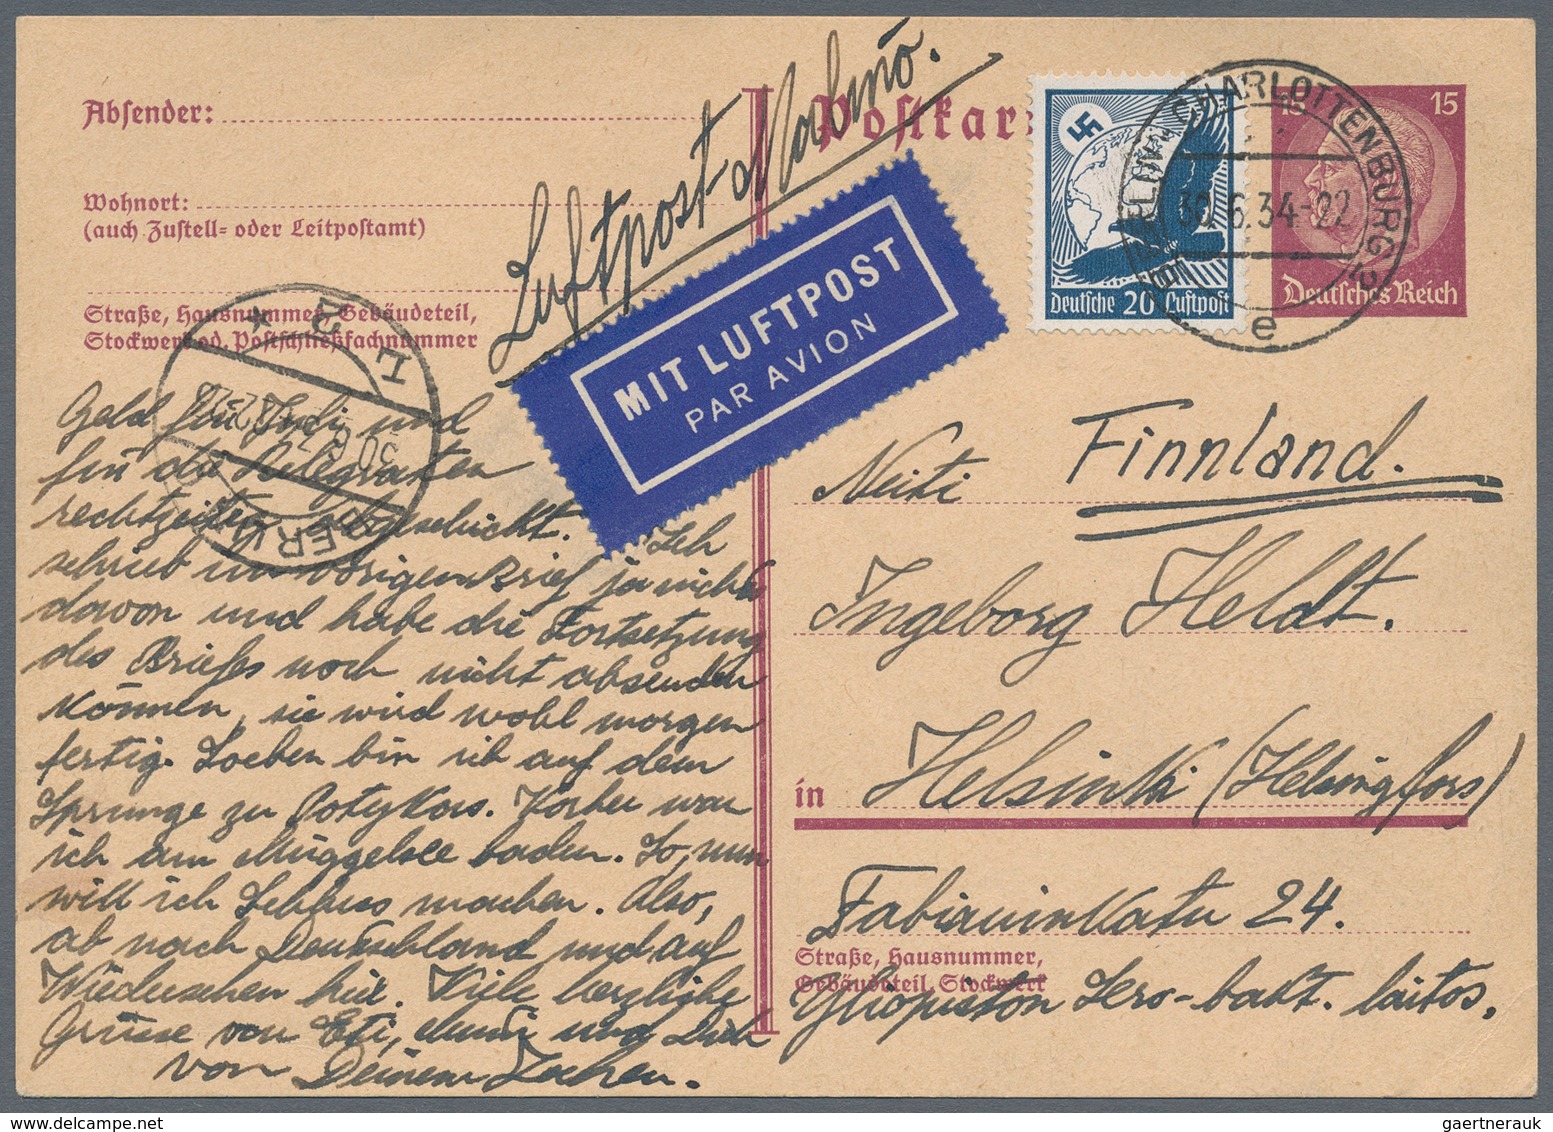 Luftpost-Malmö.
Absender:
Wohnort:
(auch Zustell- oder Leitpostamt)
Straße, Hausnummer, Gebäudeteil,
Stockwerk od. Postschließfachnummer
Postkar
MIT LUFTPOST
PAR AVION
Deutsche 20 Luftpost
15 15
Deutsches Reich
BERLIN-CHARLOTTENBURG 2
30.6.34-22
e
L 2
30.6.34
BERLIN
Geld für Indi und
für die Delegraten
rechtzeitig abgeschickt. Ich
schrieb im vorigen Brief ja nichts
davon und habe die Fortsetzung
des Briefes noch nicht absenden
können, sie wird wohl morgen
fertig. Soeben bin ich auf dem
Sprunge zu Potykas. Vorher war
ich am Müggelsee baden. So, nun
will ich Schluss machen. Also,
ab nach Deutschland und auf
Wiedersehen hier. Viele herzliche
Grüsse von Eti, und Dich
von Deinem Jochen.
Neiti Finnland.
Ingeborg Heldt.
in Helsinki (Helsingfors)
Fabianinkatu 24.
Straße, Hausnummer,
Gebäudeteil, Stockwerk
Yliopiston Sero-bakt. laitos.
gaertnerauk @ delcampe.net